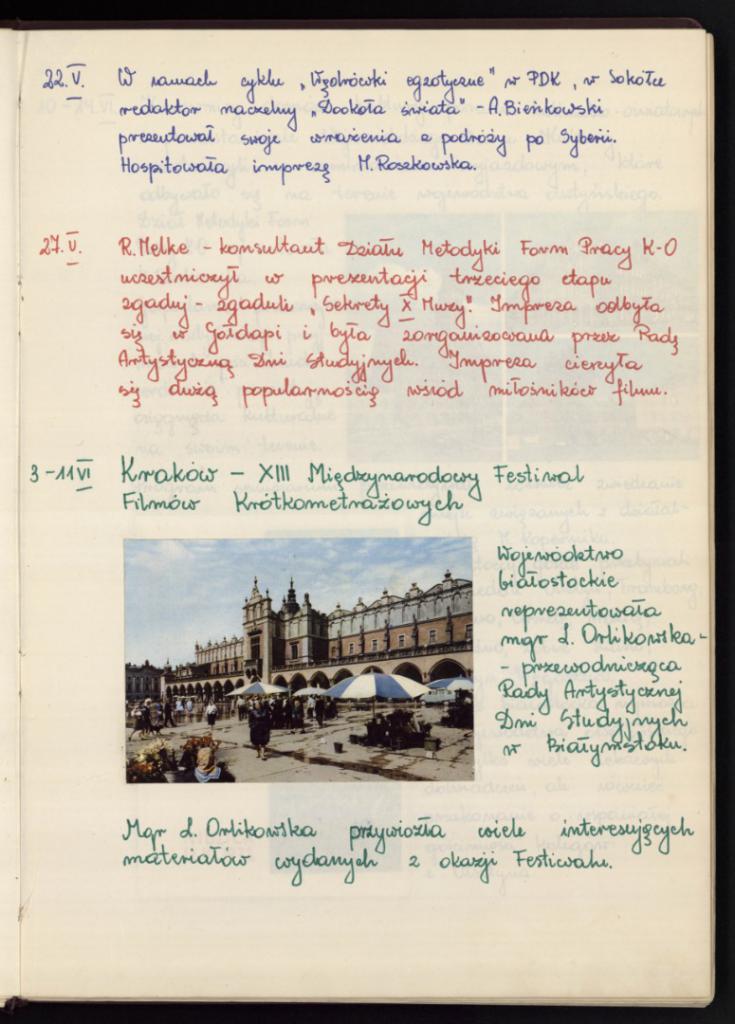 22.V. W ramach cyklu „Wędrówki egzotyczne" w PDK, w Sokółce
redaktor naczelny „Dookoła świata" - A. Bieńkowski
prezentował swoje wrażenia z podróży po Syberii.
Hospitowała imprezę M. Roszkowska.
27.V. R. Melke - konsultant Działu Metodyki Form Pracy K-O
uczestniczył w prezentacji trzeciego etapu
zgaduj-zgaduli „Sekrety X Muzy". Impreza odbyła
się w Gołdapi i była zorganizowana przez Radę
Artystyczną Dni Studyjnych. Impreza cieszyła
się dużą popularnością wśród miłośników filmu.
3-11 VI Kraków - XIII Międzynarodowy Festiwal
Filmów Krótkometrażowych
Województwo
białostockie
reprezentowała
mgr L. Orlikowska-
- przewodnicząca
Rady Artystycznej
Dni Studyjnych
w Białymstoku.
Mgr L. Orlikowska przywiozła wiele interesujących
materiałów wydanych z okazji Festiwalu.